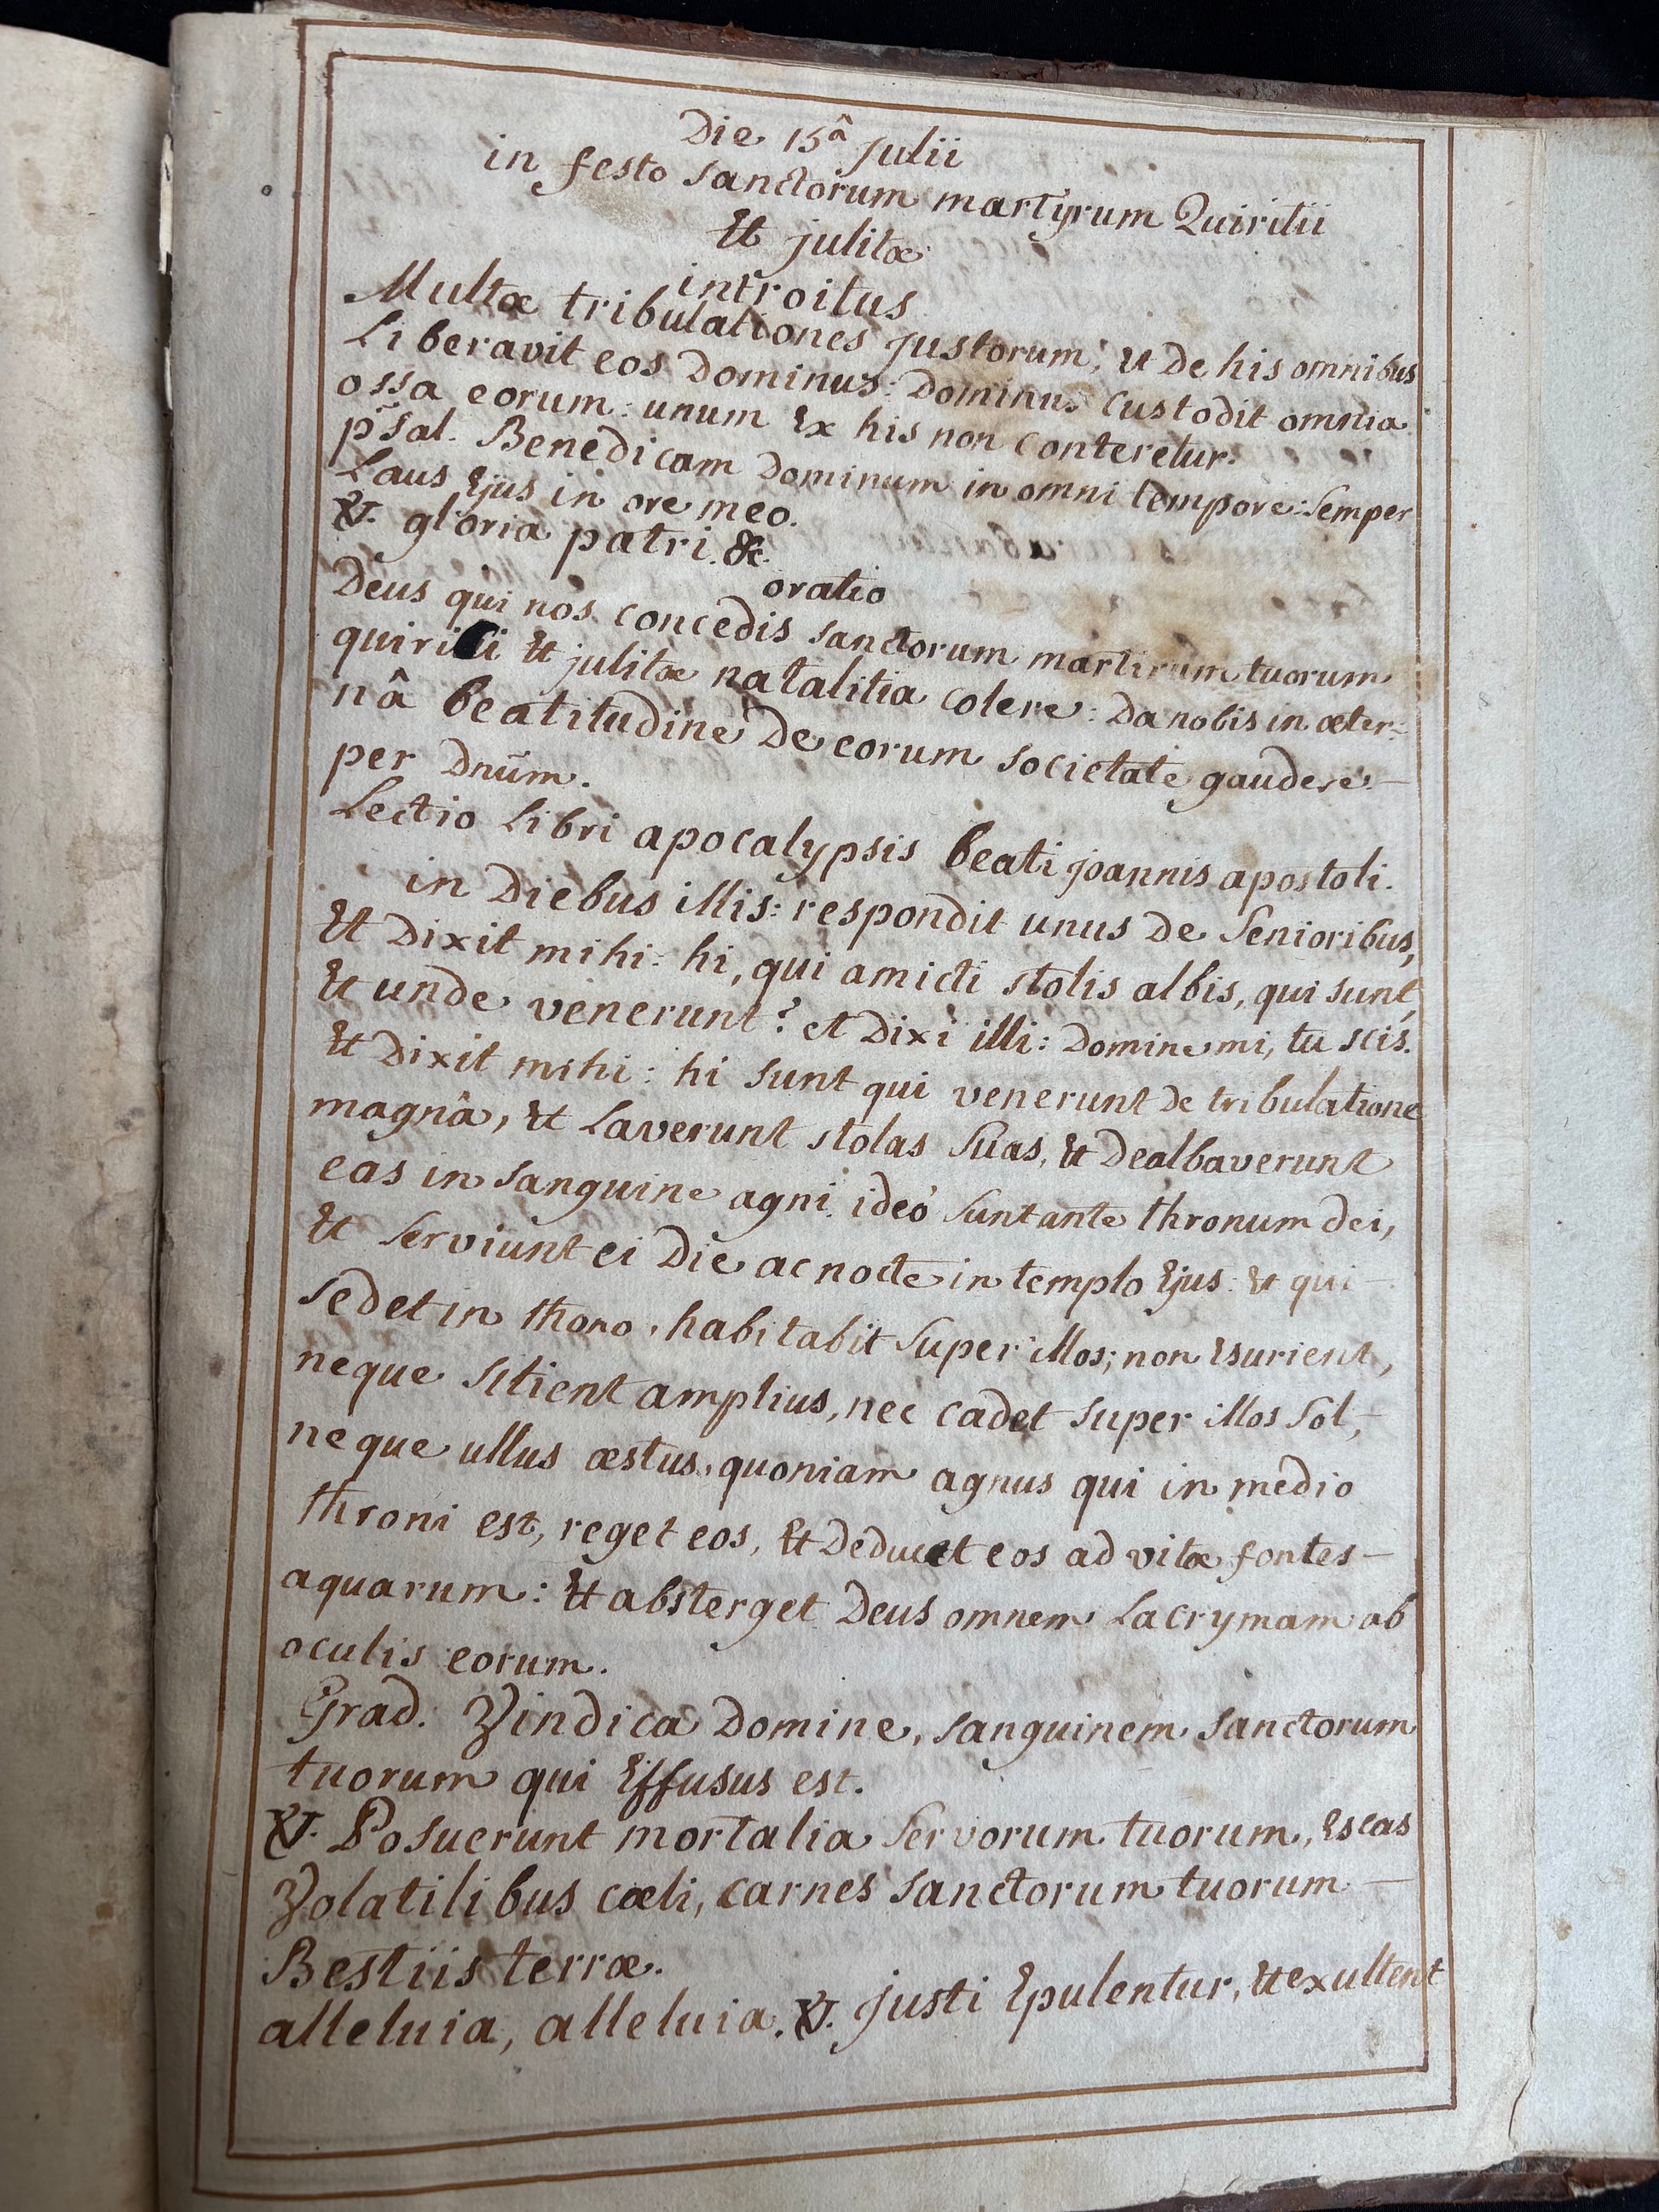 Die 15â Julii
in festo Sanctorum martyrum Quiritii
Et julitæ
introitus
Multæ tribulationes justorum, et De his omnibus
Liberavit eos Dominus: Dominus Custodit omnia
ossa eorum: unum Ex his non Conteretur.
psal. Benedicam Dominum in omni tempore: Semper
Laus Ejus in ore meo.
℣. gloria patri. &c.
oratio
Deus qui nos Concedis Sanctorum martirum tuorum
Et julitæ natalitia Colere: Da nobis in æter=
nâ beatitudine De eorum Societate gaudere. —
per Dnũm.
Lectio Libri apocalypsis beati joannis apostoli.
in Diebus illis: respondit unus De Senioribus,
Et Dixit mihi: hi, qui amicti stolis albis, qui sunt,
Et unde venerunt? et Dixi illi: Domine mi, tu scis.
Et Dixit mihi: hi sunt qui venerunt De tribulatione
magnâ, et Laverunt stolas Suas, Et Dealbaverunt
eas in Sanguine agni. ideò Sunt ante thronum dei,
Et Serviunt ei Die ac nocte in templo Ejus: Et qui
Sedet in thono, habitabit Super illos; non Esurient,
neque Sitient amplius, nec Cadet Super illos Sol, —
neque ullus æstus. quoniam agnus qui in medio
throni est, reget eos, Et Deducet eos ad vitæ fontes —
aquarum: Et absterget Deus omnem Lacrymam ab
oculis eorum.
Grad. Vindica Domine, Sanguinem Sanctorum
tuorum qui Effusus est.
℣. Posuerunt mortalia Servorum tuorum, Escas
Volatilibus cœli, Carnes Sanctorum tuorum —
Bestiis terræ.
alleluia, alleluia. ℣. justi Epulentur, Et exultent